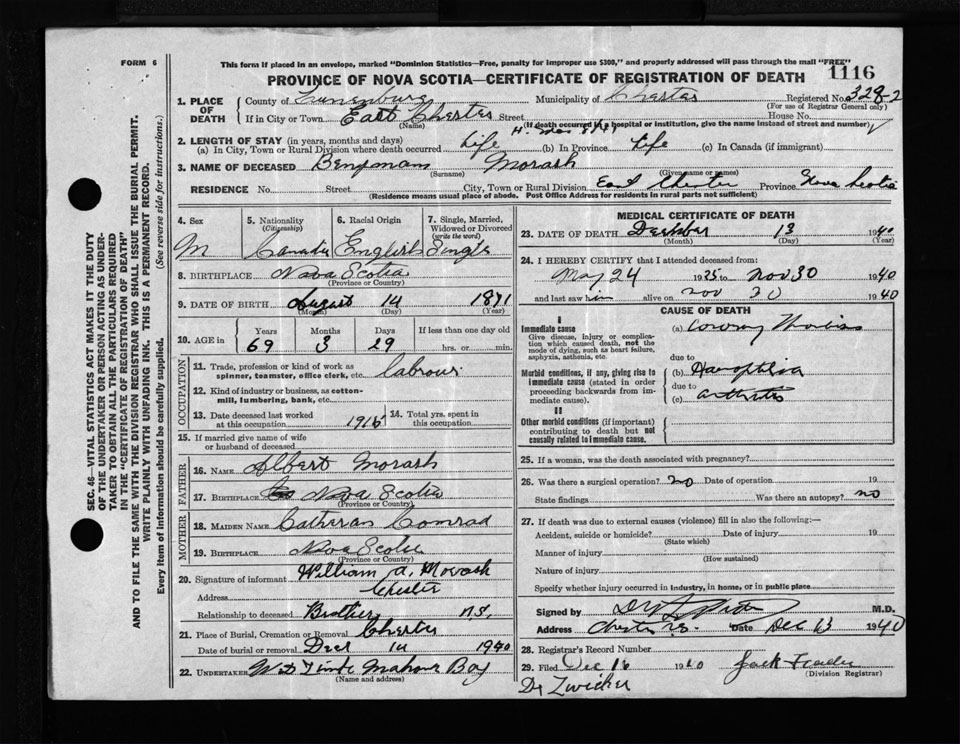 FORM 6
This form if placed in an envelope, marked "Dominion Statistics—Free, penalty for improper use $300", and properly addressed will pass through the mail "FREE"
PROVINCE OF NOVA SCOTIA—CERTIFICATE OF REGISTRATION OF DEATH
1116
1. PLACE OF DEATH
County of Lunenburg Municipality of Chester Registered No. 328-2
(For use of Registrar General only)
If in City or Town East Chester Street House No.
(Name) (If death occurred in hospital or institution, give the name instead of street and number)
2. LENGTH OF STAY (in years, months and days)
(a) In City, Town or Rural Division where death occurred Life (b) In Province Life (c) In Canada (if immigrant)
3. NAME OF DECEASED Benjmam Morash
(Surname) (Given name or names)
RESIDENCE No. Street City, Town or Rural Division East Chester Province Nova Scotia
(Residence means usual place of abode. Post Office Address for residents in rural parts not sufficient)
4. Sex M
5. Nationality (Citizenship) Canadia
6. Racial Origin English
7. Single, Married, Widowed or Divorced (write the word) Single
8. BIRTHPLACE Nova Scotia
(Province or Country)
9. DATE OF BIRTH August 14 1871
(Month) (Day) (Year)
10. AGE in Years Months Days If less than one day old
69 3 29 hrs. or min.
OCCUPATION
11. Trade, profession or kind of work as spinner, teamster, office clerk, etc. labrour
12. Kind of industry or business, as cotton-mill, lumbering, bank, etc.
13. Date deceased last worked at this occupation 1915
14. Total yrs. spent in this occupation
15. If married give name of wife or husband of deceased
FATHER
16. NAME Albert Morash
17. BIRTHPLACE Nova Scotia
(Province or Country)
MOTHER
18. MAIDEN NAME Catheran Conrad
19. BIRTHPLACE Nova Scotia
(Province or Country)
20. Signature of informant William A. Morash
Address Chester
Relationship to deceased Brother N.S.
21. Place of Burial, Cremation or Removal Chester
Date of burial or removal Dec 14 1940
22. UNDERTAKER Mahone Bay
(Name and address)
MEDICAL CERTIFICATE OF DEATH
23. DATE OF DEATH 13 1940
(Month) (Day) (Year)
24. I HEREBY CERTIFY that I attended deceased from:
May 24 1935 to Nov 30 1940
and last saw him alive on Nov 30 1940
CAUSE OF DEATH
I
Immediate cause
Give disease, injury or complication which caused death, not the mode of dying, such as heart failure, asphyxia, asthenia, etc.
(a)
due to
Morbid conditions, if any, giving rise to immediate cause (stated in order proceeding backwards from immediate cause).
(b)
due to
(c) arthritis
II
Other morbid conditions (if important) contributing to death but not causally related to immediate cause.
25. If a woman, was the death associated with pregnancy?
26. Was there a surgical operation? no Date of operation 19
State findings Was there an autopsy? no
27. If death was due to external causes (violence) fill in also the following:—
Accident, suicide or homicide? Date of injury 19
(State which)
Manner of injury
(How sustained)
Nature of injury
Specify whether injury occurred in industry, in home, or in public place
Signed by M.D.
Address Chester N.S. Date Dec 13 1940
28. Registrar's Record Number
29. Filed Dec 16 1940
(Division Registrar)
Dr Zwicker
SEC. 46—VITAL STATISTICS ACT MAKES IT THE DUTY
OF THE UNDERTAKER OR PERSON ACTING AS UNDER-
TAKER TO OBTAIN ALL THE PARTICULARS REQUIRED
IN THE "CERTIFICATE OF REGISTRATION OF DEATH"
AND TO FILE THE SAME WITH THE DIVISION REGISTRAR WHO SHALL ISSUE THE BURIAL PERMIT.
WRITE PLAINLY WITH UNFADING INK. THIS IS A PERMANENT RECORD.
Every item of information should be carefully supplied. (See reverse side for instructions.)